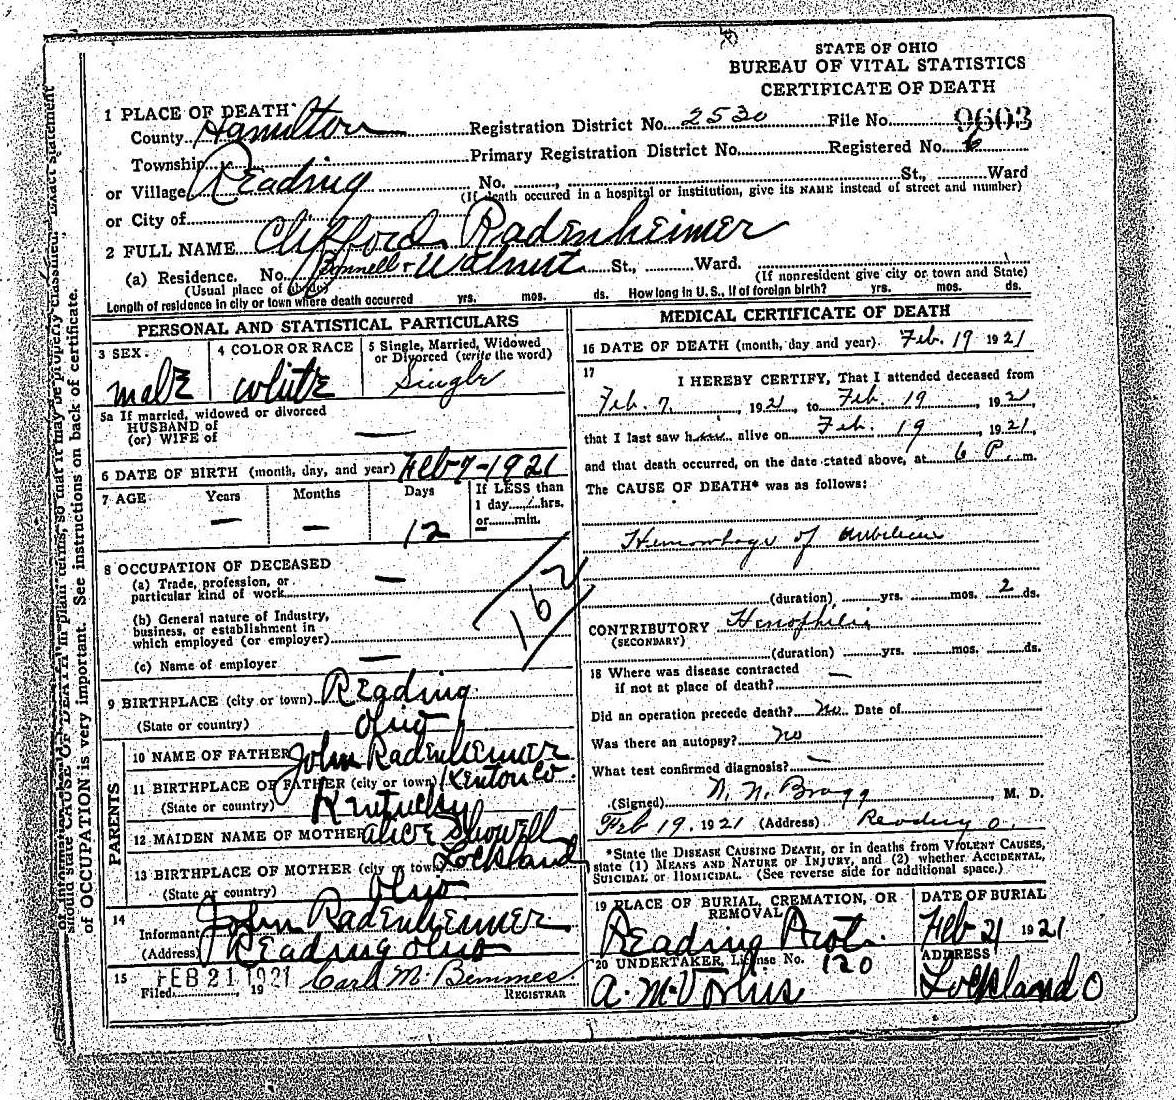 STATE OF OHIO
BUREAU OF VITAL STATISTICS
CERTIFICATE OF DEATH
1 PLACE OF DEATH
County Hamilton Registration District No. 2530 File No. 9603
Township Primary Registration District No. Registered No. 6
or Village Reading No. St., Ward
(If death occured in a hospital or institution, give its NAME instead of street and number)
or City of
2 FULL NAME Clifford Radenheimer
(a) Residence. No. Bonnell + Walnut St., Ward.
(Usual place of abode) (If nonresident give city or town and State)
Length of residence in city or town where death occurred yrs. mos. ds. How long in U.S., if of foreign birth? yrs. mos. ds.
PERSONAL AND STATISTICAL PARTICULARS
3 SEX. 4 COLOR OR RACE 5 Single, Married, Widowed
or Divorced (write the word)
male white Single
5a If married, widowed or divorced
HUSBAND of
(or) WIFE of —
6 DATE OF BIRTH (month, day, and year) Feb 7-1921
7 AGE Years Months Days If LESS than
1 day, hrs.
— — 12 or min.
8 OCCUPATION OF DECEASED
(a) Trade, profession, or
particular kind of work —
(b) General nature of Industry,
business, or establishment in
which employed (or employer)
(c) Name of employer —
162
9 BIRTHPLACE (city or town) Reading
(State or country) Ohio
PARENTS
10 NAME OF FATHER John Radenheimer
11 BIRTHPLACE OF FATHER (city or town) Kenton Co
(State or country) Kentucky
12 MAIDEN NAME OF MOTHER Alice Showell
13 BIRTHPLACE OF MOTHER (city or town) Lockland
(State or country) Ohio
14
Informant John Radenheimer
(Address) Reading Ohio
15 FEB 21 1921 Carl M. Bemmes
Filed 19 REGISTRAR
MEDICAL CERTIFICATE OF DEATH
16 DATE OF DEATH (month, day and year) Feb. 19 1921
17 I HEREBY CERTIFY, That I attended deceased from
Feb. 7, 1921, to Feb. 19, 1921,
that I last saw him alive on Feb. 19, 1921,
and that death occurred, on the date stated above, at 6 P. m.
The CAUSE OF DEATH* was as follows:
Hemorrhage of umbilicus
(duration) yrs. mos. 2 ds.
CONTRIBUTORY Hemophilia
(SECONDARY)
(duration) yrs. mos. ds.
18 Where was disease contracted
if not at place of death? —
Did an operation precede death? No Date of
Was there an autopsy? no
What test confirmed diagnosis? —
(Signed) N. N. Bragg, M. D.
Feb 19, 1921 (Address) Reading O.
*State the DISEASE CAUSING DEATH, or in deaths from VIOLENT CAUSES,
state (1) MEANS AND NATURE OF INJURY, and (2) whether ACCIDENTAL,
SUICIDAL or HOMICIDAL. (See reverse side for additional space.)
19 PLACE OF BURIAL, CREMATION, OR
REMOVAL
Reading Prot.
DATE OF BURIAL
Feb 21 1921
20 UNDERTAKER, License No. 120
A. M. Vorhis
ADDRESS
Lockland O
should state CAUSE OF DEATH in plain terms, so that it may be properly classified. Exact statement
of OCCUPATION is very important. See instructions on back of certificate.